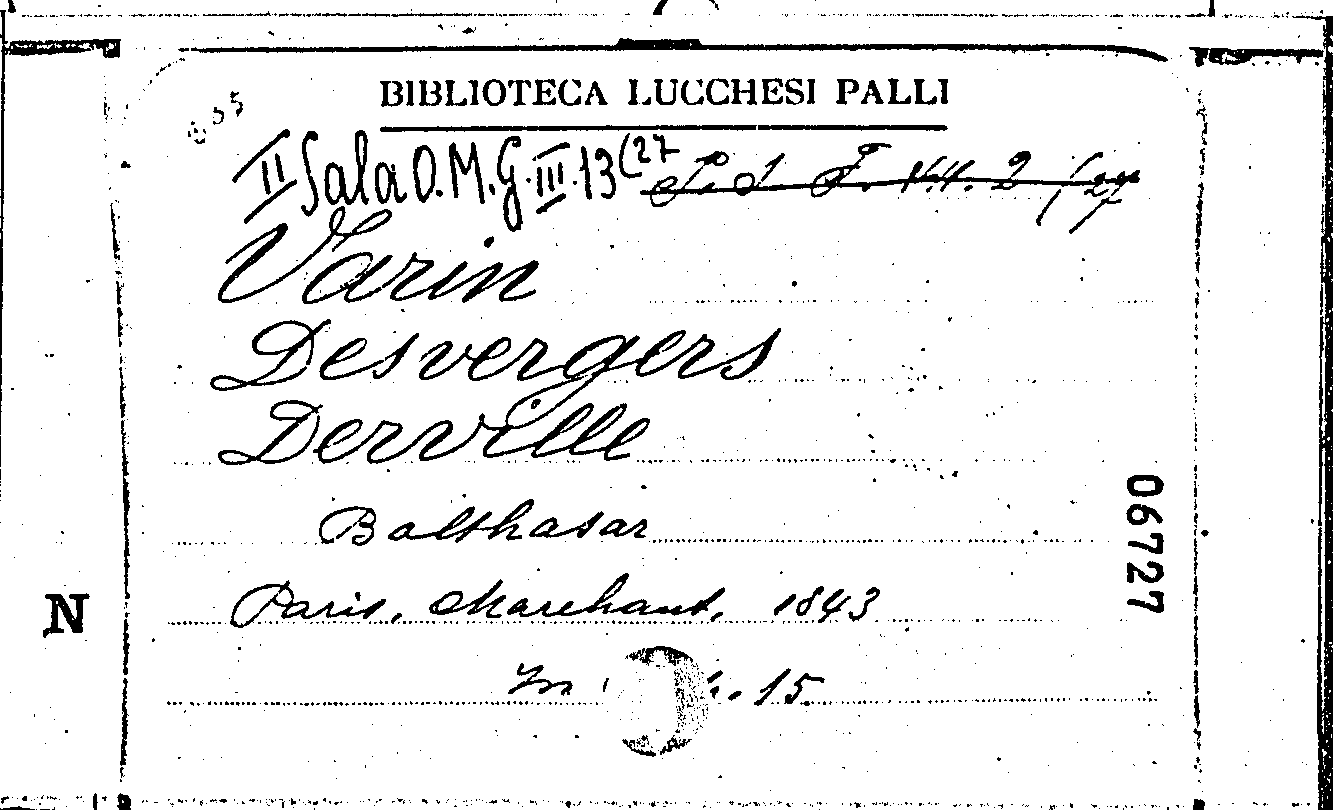 BIBLIOTECA LUCCHESI PALLI
II Sala O.M.G.III.13(27
Varin
Desvergers
Derville
Balthasar
Paris, Marchant, 1843
In 15
06727
N